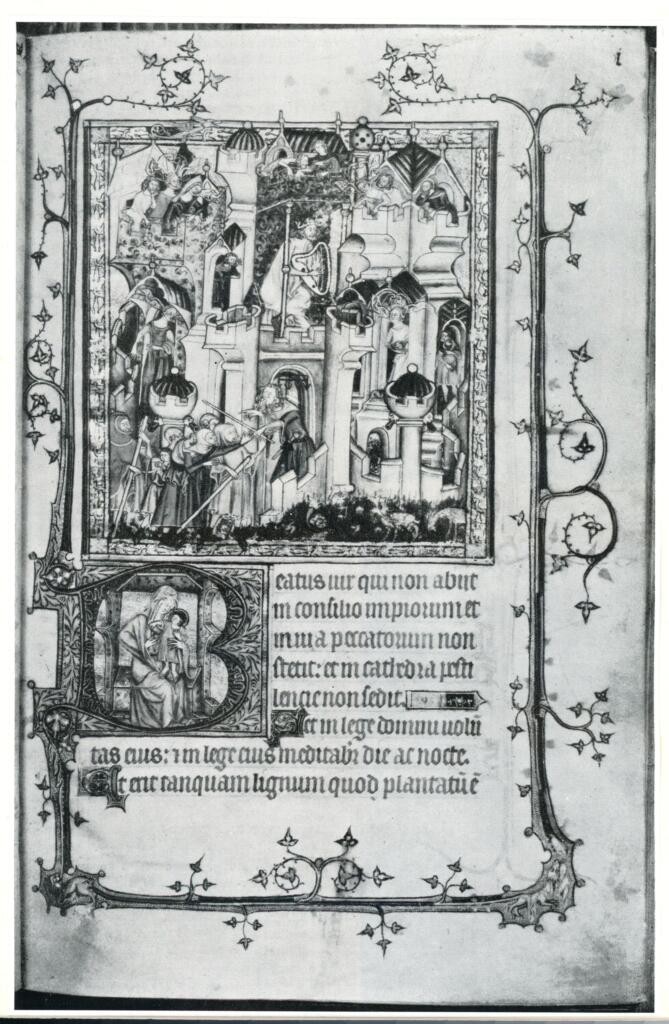 i
Beatus uir qui non abiit
in consilio impiorum et
in uia peccatorum non
stetit: et in cathedra pesti
lencie non sedit.
Set in lege domini uolū
tas eius: ⁊ in lege eius meditabr̄ die ac nocte.
Et erit tanquam lignum quod plantatū ē